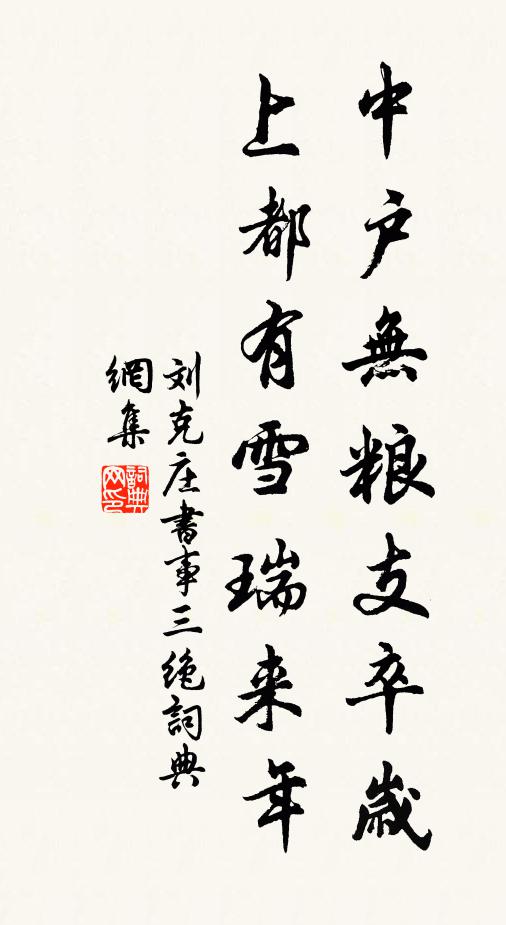 中户無粮支卒歲
上都有雪瑞来年
刘克庄書事三绝詞典
網集
詞典網印